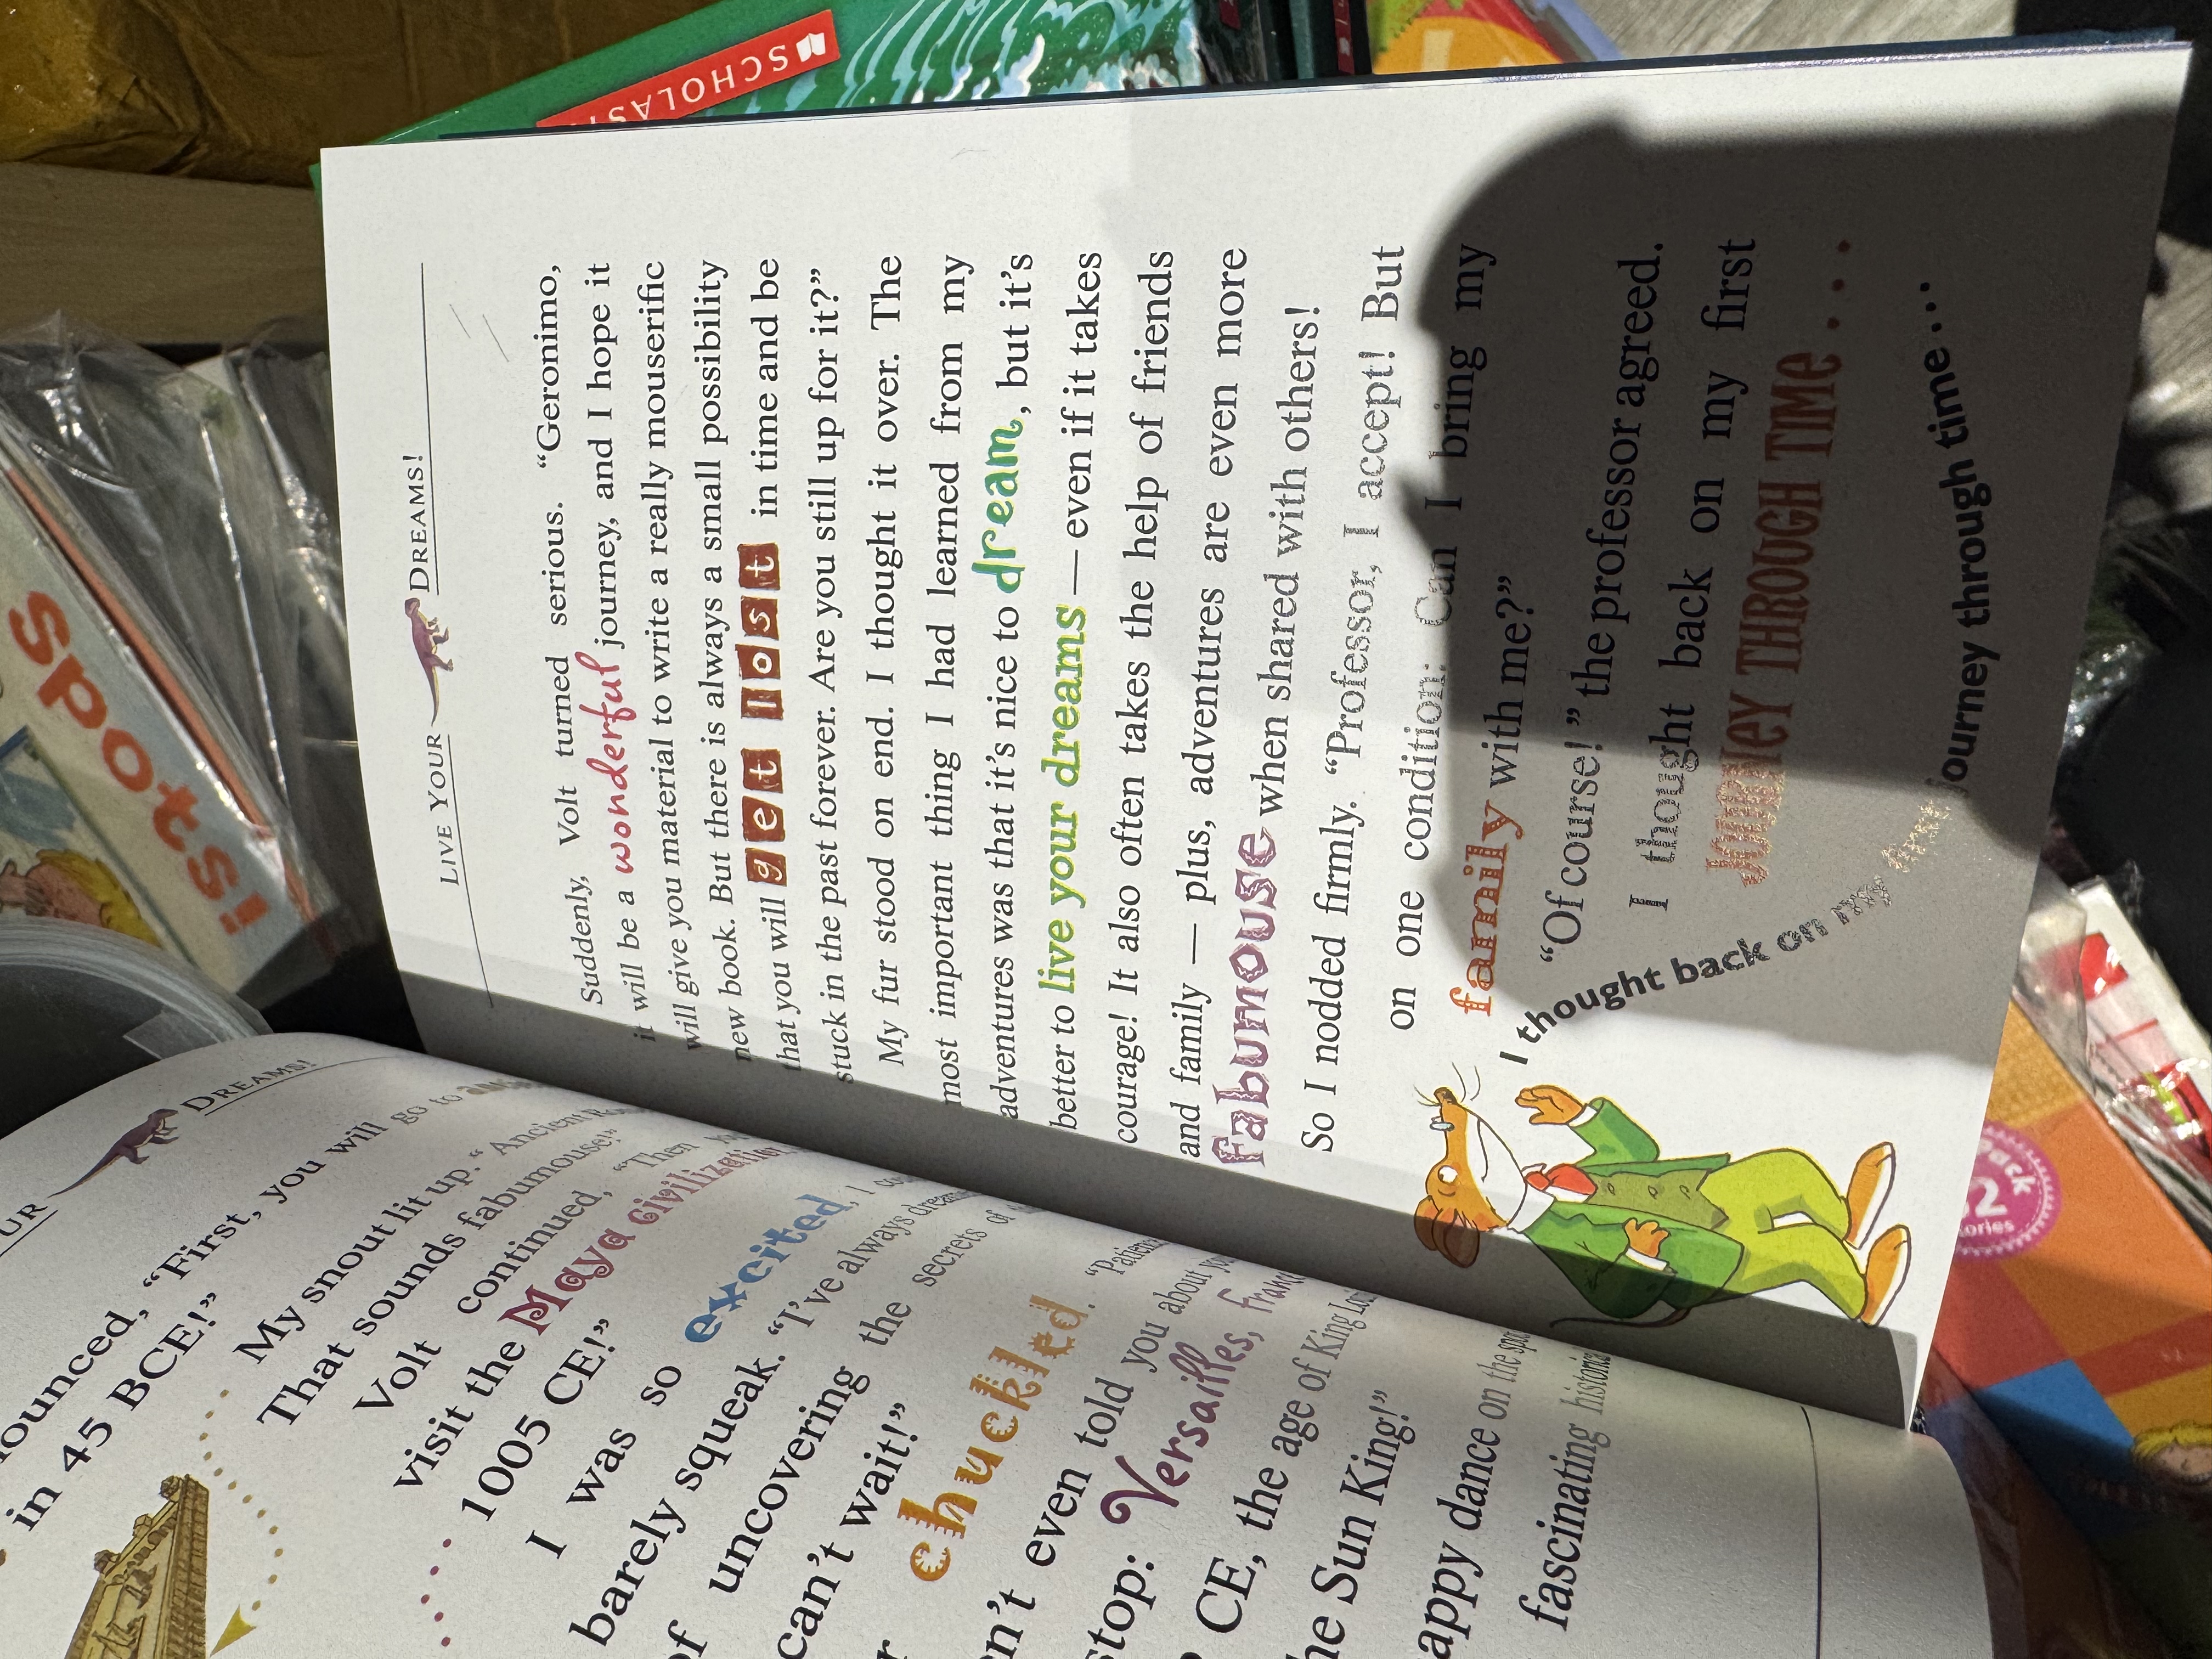 UR DREAMS!
nounced, “First, you will go to
in 45 BCE!”
My snout lit up. “Ancient
That sounds fabumouse!”
Volt continued, “Then
visit the Maya Civilization
1005 CE!”
I was so excited, I
barely squeak. “I’ve always
of uncovering the secrets of
can’t wait!”
chuckled. “
en’t even told you about
stop: Versailles,
CE, the age of King
he Sun King!”
appy dance on the
fascinating
LIVE YOUR DREAMS!
Suddenly, Volt turned serious. “Geronimo,
it will be a wonderful journey, and I hope it
will give you material to write a really mouserific
new book. But there is always a small possibility
that you will get lost in time and be
stuck in the past forever. Are you still up for it?”
My fur stood on end. I thought it over. The
most important thing I had learned from my
adventures was that it’s nice to dream, but it’s
better to live your dreams — even if it takes
courage! It also often takes the help of friends
and family — plus, adventures are even more
fabumouse when shared with others!
So I nodded firmly. “Professor, I accept! But
on one condition: Can I bring my
family with me?”
“Of course!” the professor agreed.
I thought back on my first
JOURNEY THROUGH TIME . . . .
I thought back on my first journey through time...
SCHOLAS
spots!